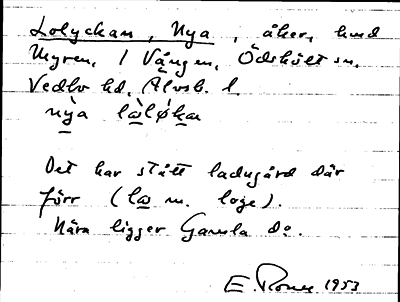 Lolyckan, Nya, åker, hmd
Myren, 1 Vången, Ödskölt sn,
Vedbo hd, Älvsb. l.
nỳa lå̠løkan
Det har stått ladugård där
förr (la̠ m. loge).
Nära ligger Gamla Do.
E. 1953